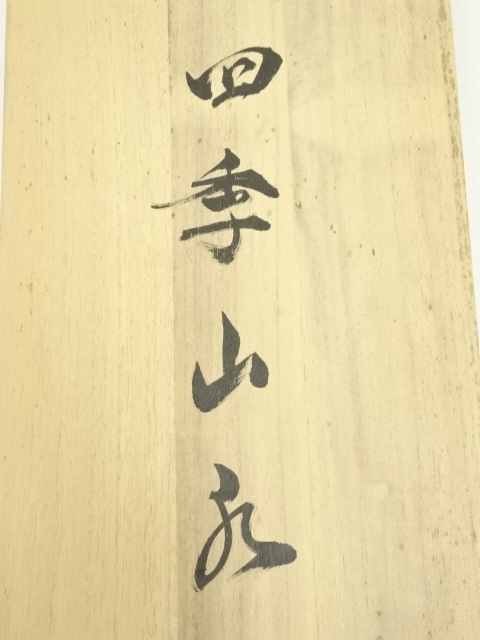 四季山水